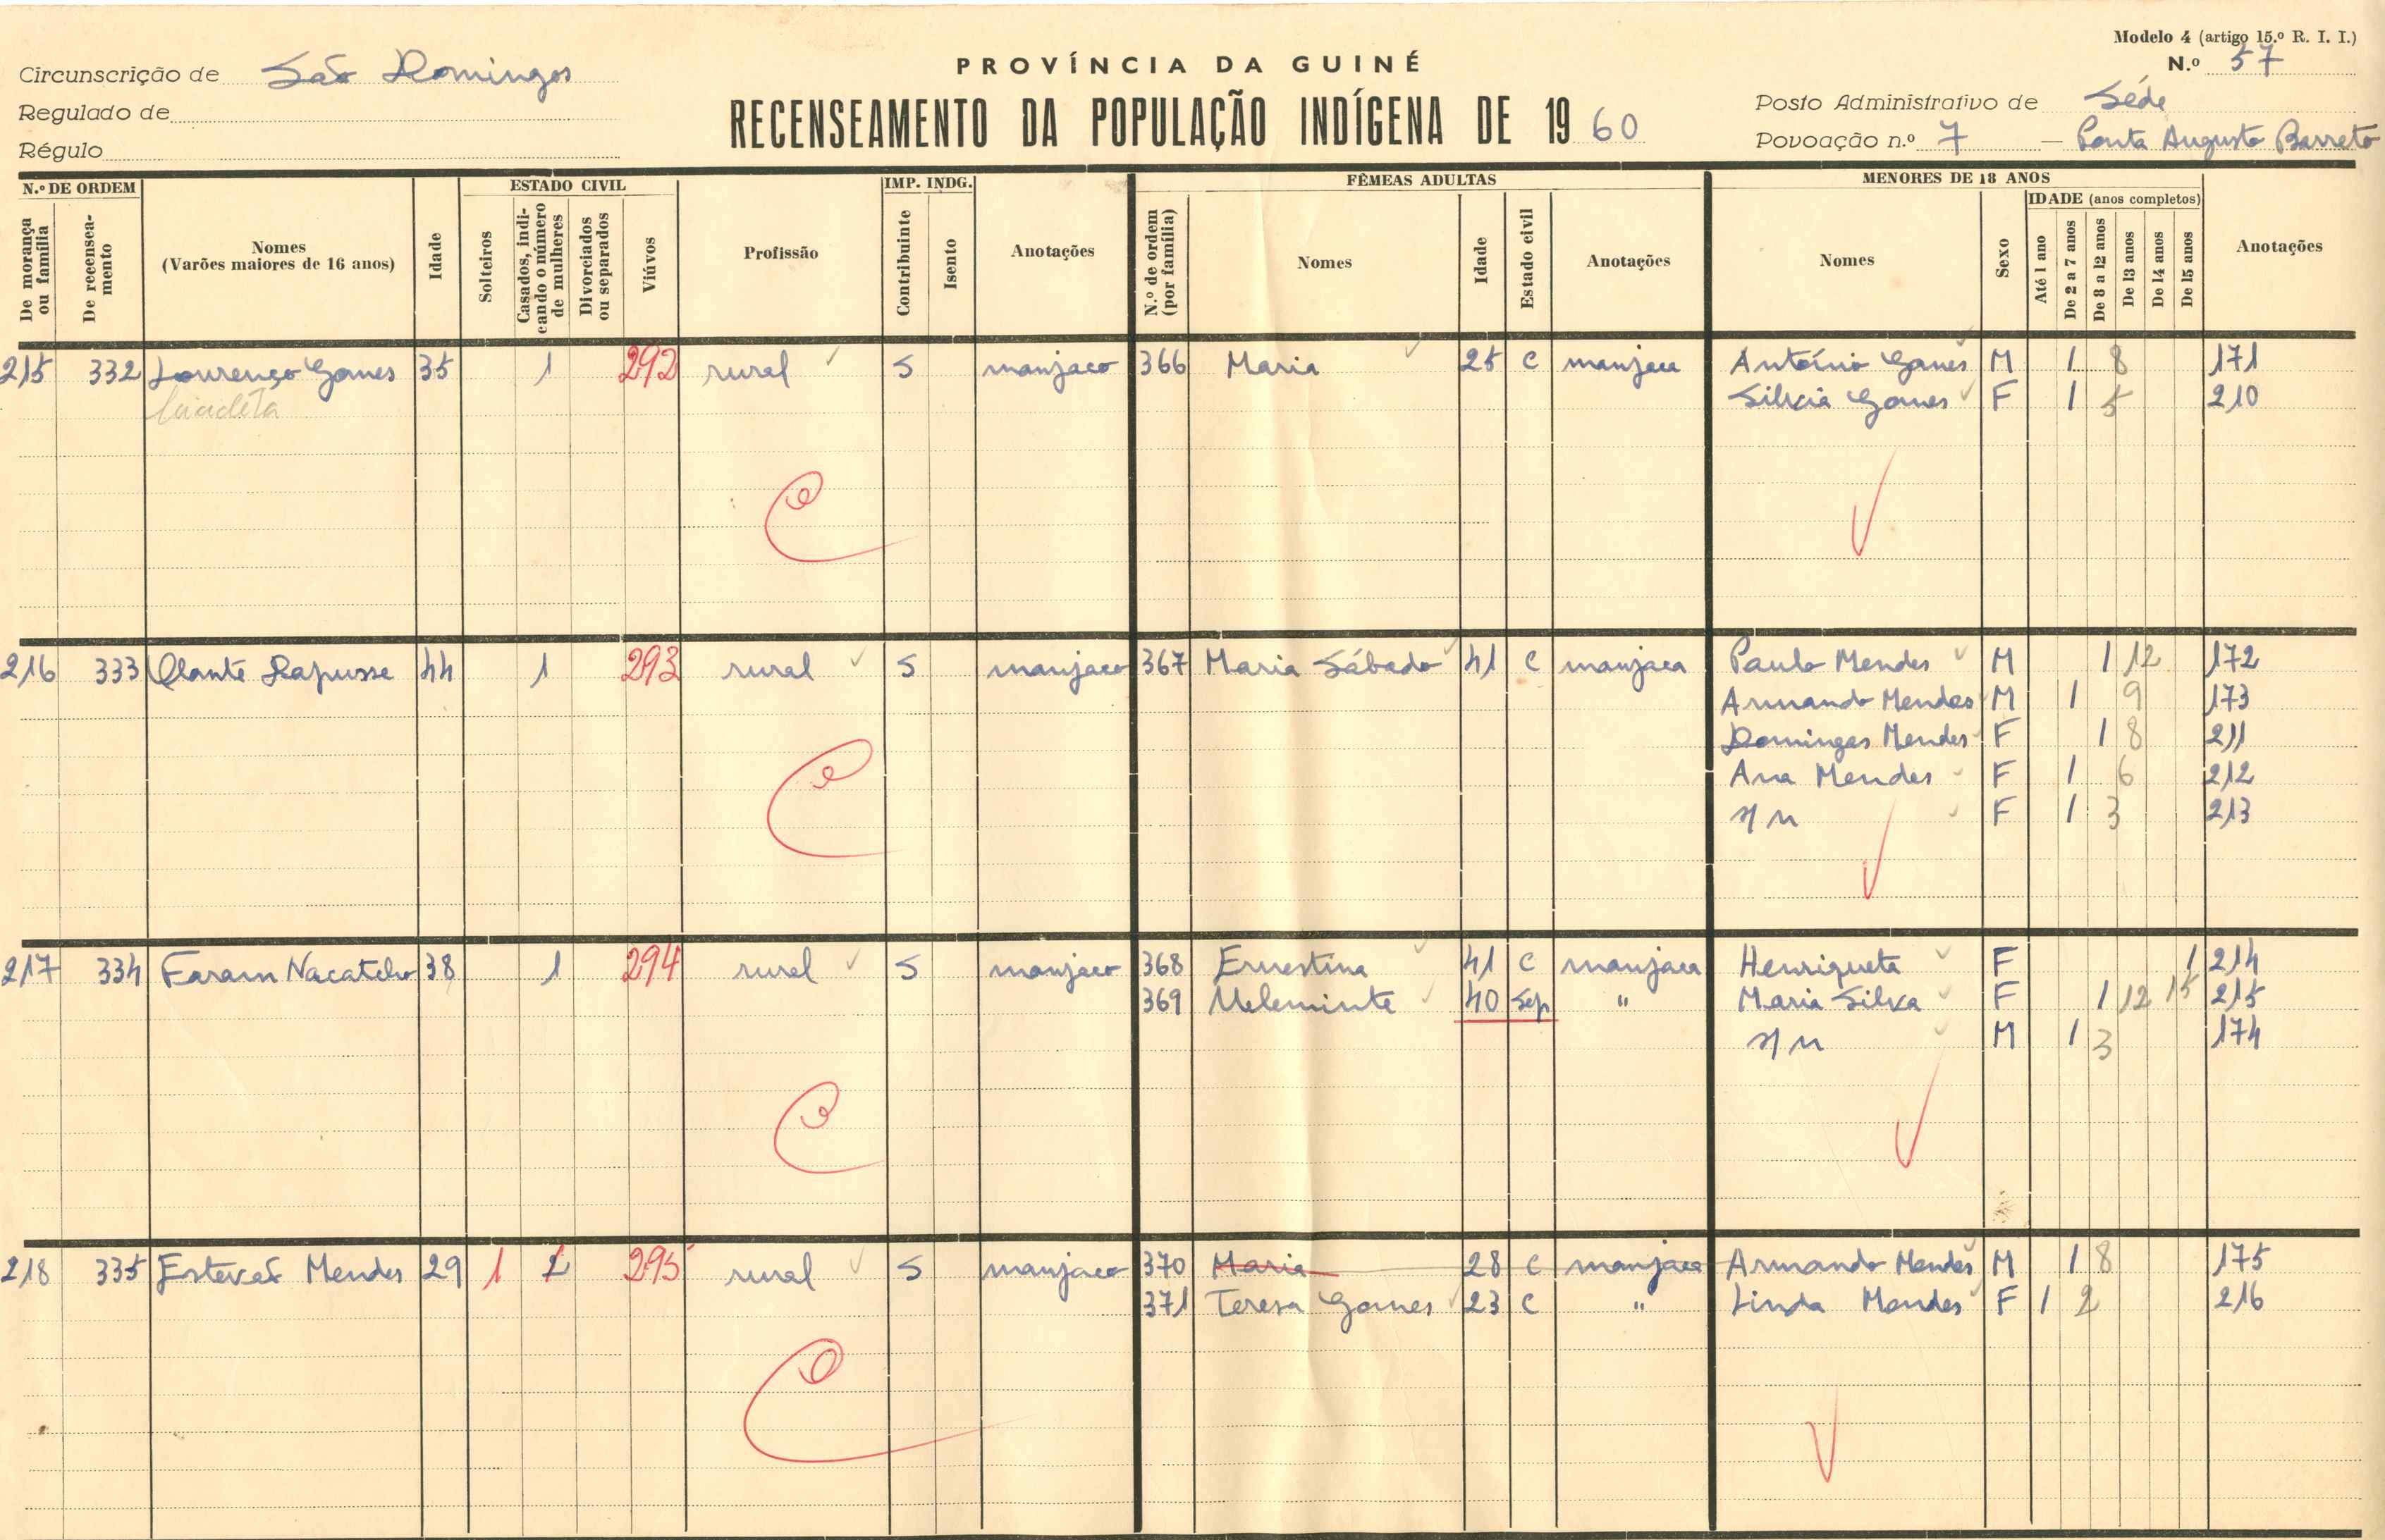 Modelo 4 (artigo 15.º R. I. I.)
N.º 57
Circunscrição de São Domingos
Regulado de
Régulo
PROVÍNCIA DA GUINÉ
RECENSEAMENTO DA POPULAÇÃO INDÍGENA DE 1960
Posto Administrativo de Séde
Povoação n.º 7 — Ponta Augusto Barreto
N.º DE ORDEM
De morança ou família
De recenseamento
Nomes
(Varões maiores de 16 anos)
Idade
ESTADO CIVIL
Solteiros
Casados, indicando o número de mulheres
Divorciados ou separados
Viúvos
Profissão
IMP. INDG.
Contribuinte
Isento
Anotações
FÊMEAS ADULTAS
N.º de ordem (por família)
Nomes
Idade
Estado civil
Anotações
MENORES DE 18 ANOS
Nomes
Sexo
IDADE (anos completos)
Até 1 ano
De 2 a 7 anos
De 8 a 12 anos
De 13 anos
De 14 anos
De 15 anos
Anotações
215 332 Lourenço Gomes 35 1 292 rural S manjaco 366 Maria 25 C manjaca António Gomes M 1 8 171
Silvia Gomes F 1 5 210
216 333 Olante Dapusse 44 1 293 rural S manjaco 367 Maria Sábado 41 C manjaca Paulo Mendes M 1 12 172
Armando Mendes M 1 9 173
Domingas Mendes F 1 8 211
Ana Mendes F 1 6 212
s/n F 1 3 213
217 334 Faram Nacatcho 38 1 294 rural S manjaco 368 Ernestina 41 C manjaca Henriqueta F 1 214
369 Meleminte 40 Sep " Maria Silva F 1 12 15 215
s/n M 1 3 174
218 335 Estevão Mendes 29 1 2 295 rural S manjaco 370 Maria 28 C manjaca Armando Mendes M 1 8 175
371 Teresa Gomes 23 C " Linda Mendes F 1 2 216